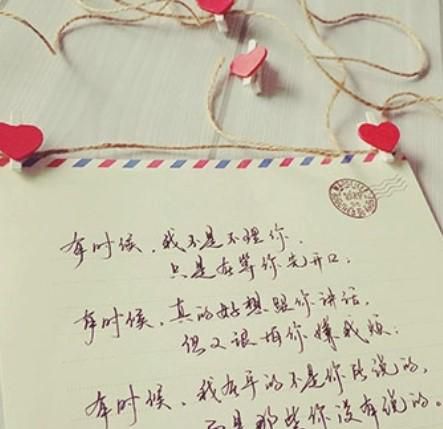 有时候，我不是不理你，
只是在等你先开口；
有时候，真的好想跟你讲话，
但又很怕你嫌我烦；
有时候，我在乎的不是你所说的，
而是那些你没有说的。